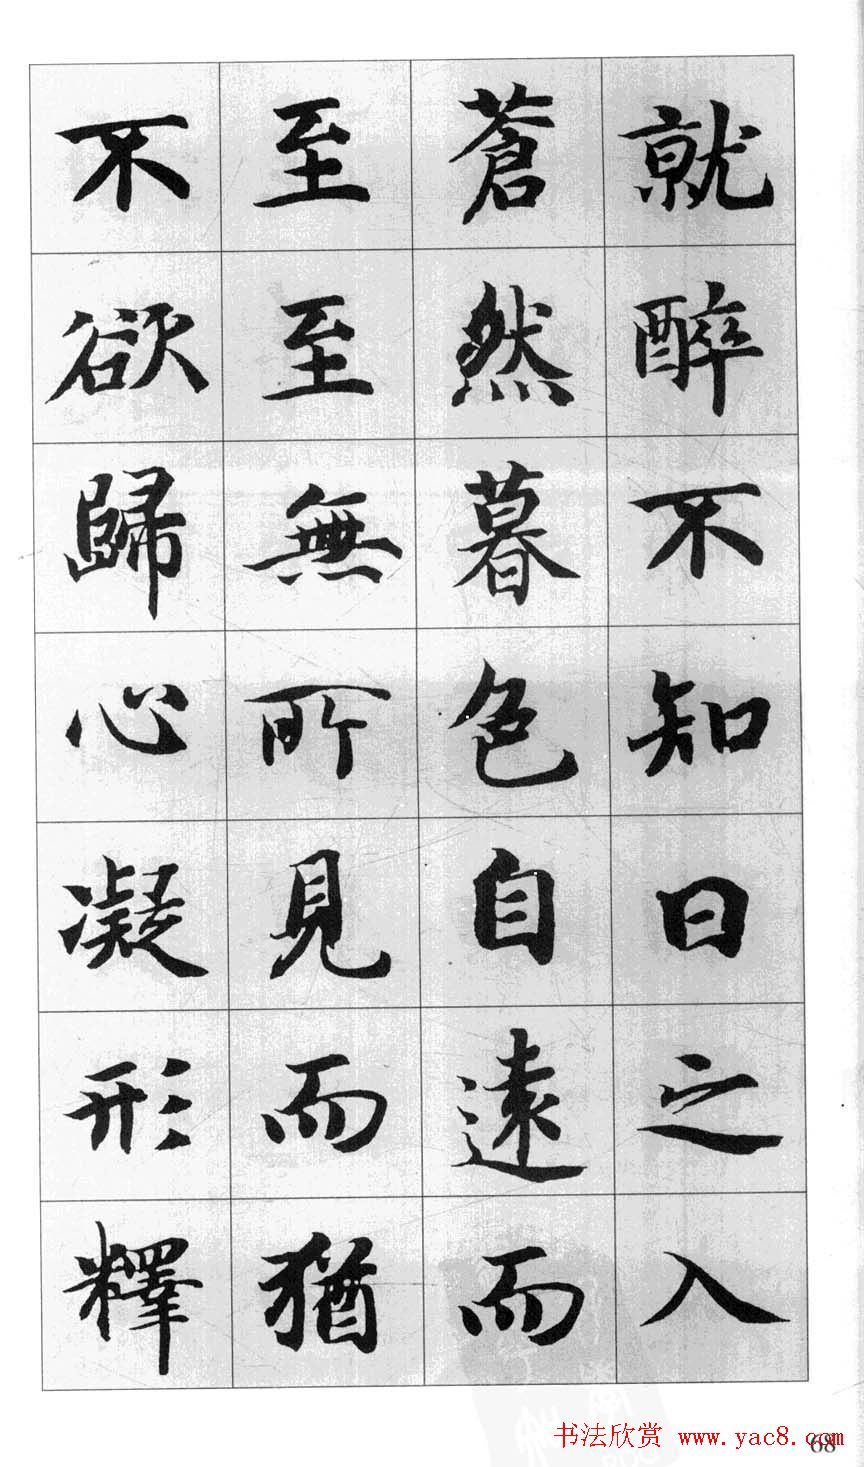 就醉不知日之入
蒼然暮色自遠而
至至無所見而猶
不欲歸心凝形釋
书法欣赏 www.yac8.com
68